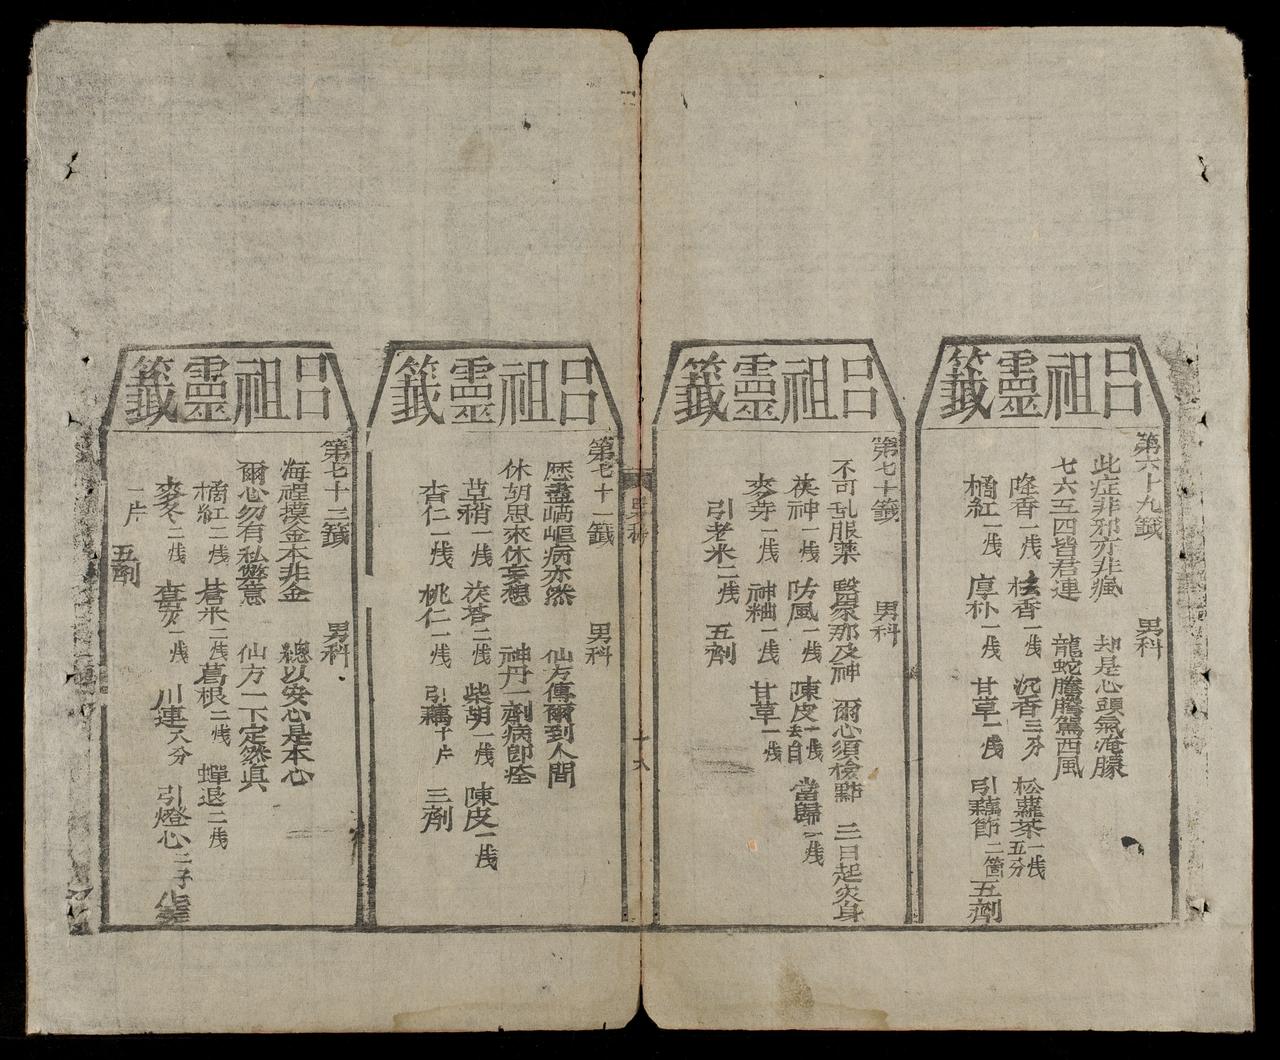 呂祖靈籤
第六十九籤　男科
此症非邪亦非瘋　却是心頭氣淹朦
七六五四皆君連　龍蛇騰騰駕西風
降香一戋　枝香一戋　沉香三分　松蘿茶一戋五分
橘紅一戋　厚朴一戋　甘草一戋　引藕節二箇　五劑
呂祖靈籤
第七十籤　男科
不可乱服薬　醫家那及神　爾心須檢點　三日起灾身
茯神一戋　防風一戋　陳皮一戋去白　當歸一戋
麥芽一戋　神粬一戋　甘草一戋
引老米二戋　五劑
男科
十八
呂祖靈籤
第七十一籤　男科
歷盡崎嶇病亦然　仙方傳爾到人間
休胡思來休妄想　神丹一劑病卽痊
草稍一戋　茯苓二戋　柴胡一戋　陳皮一戋
杏仁一戋　桃仁一戋　引藕十片　三劑
呂祖靈籤
第七十二籤　男科
海裡摸金本非金　總以安心是本心
爾心勿有私弊意　仙方一下定然真
橘紅二戋　蒼米二戋　葛根二戋　蟬退二戋
麥冬二戋　查炭一戋　川連八分　引燈心二子
一片　五劑